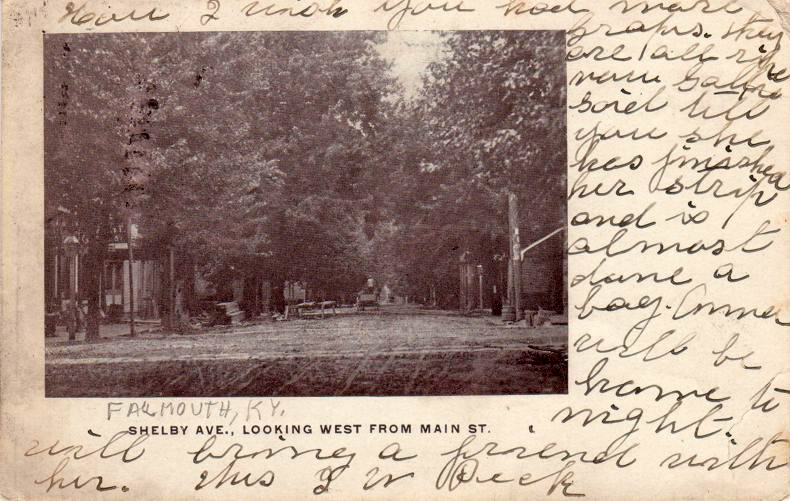 How I wish you had more
graps. they
are all ripe
mrs Sallie
said tell
you she
has finished
her strip
and is
almost
done a
bag. Emma
will be
home to
night.
FALMOUTH, KY.
SHELBY AVE., LOOKING WEST FROM MAIN ST.
will bring a friend with
her. this J W Peck